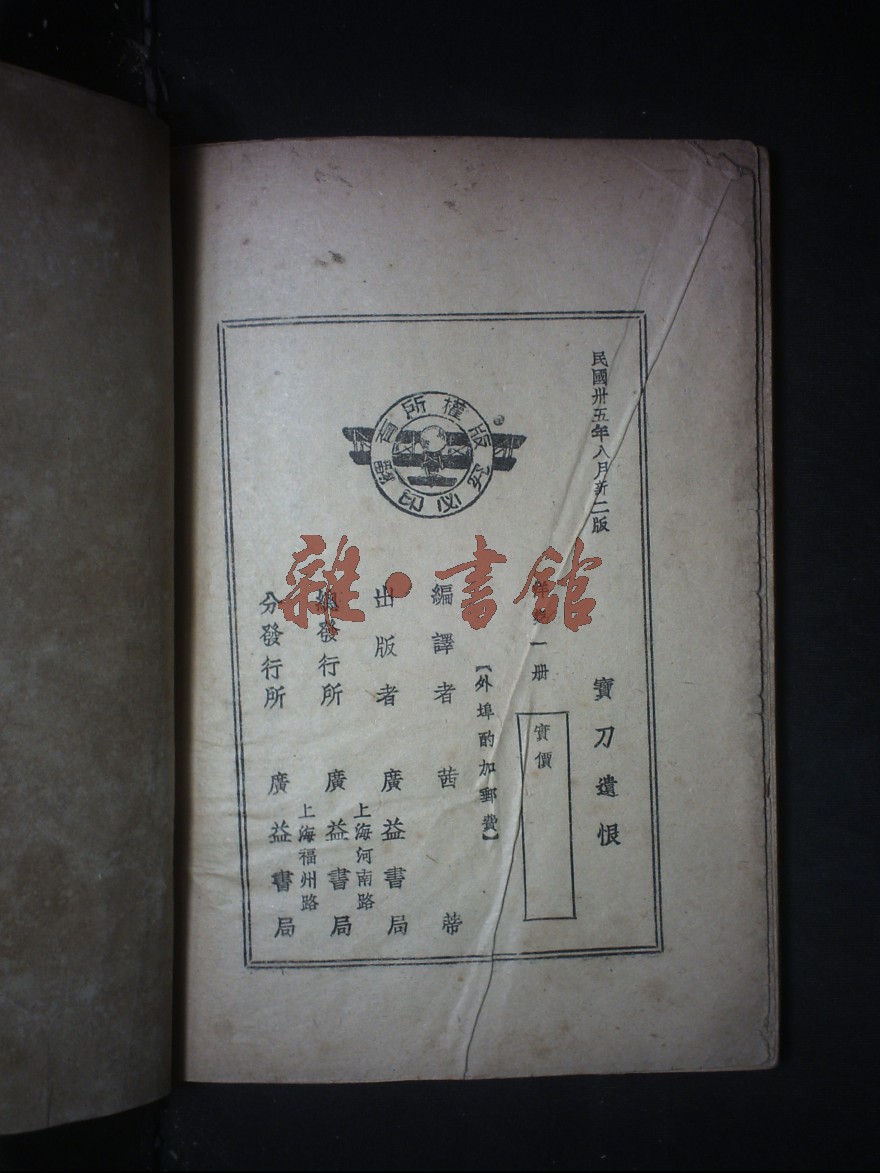 民國卅五年八月新二版
寶刀遺恨
一册
實價
【外埠酌加郵費】
編譯者 茜蒂
出版者 廣益書局
上海河南路
總發行所 廣益書局
上海福州路
分發行所 廣益書局
版權所有
翻印必究
雜·書館